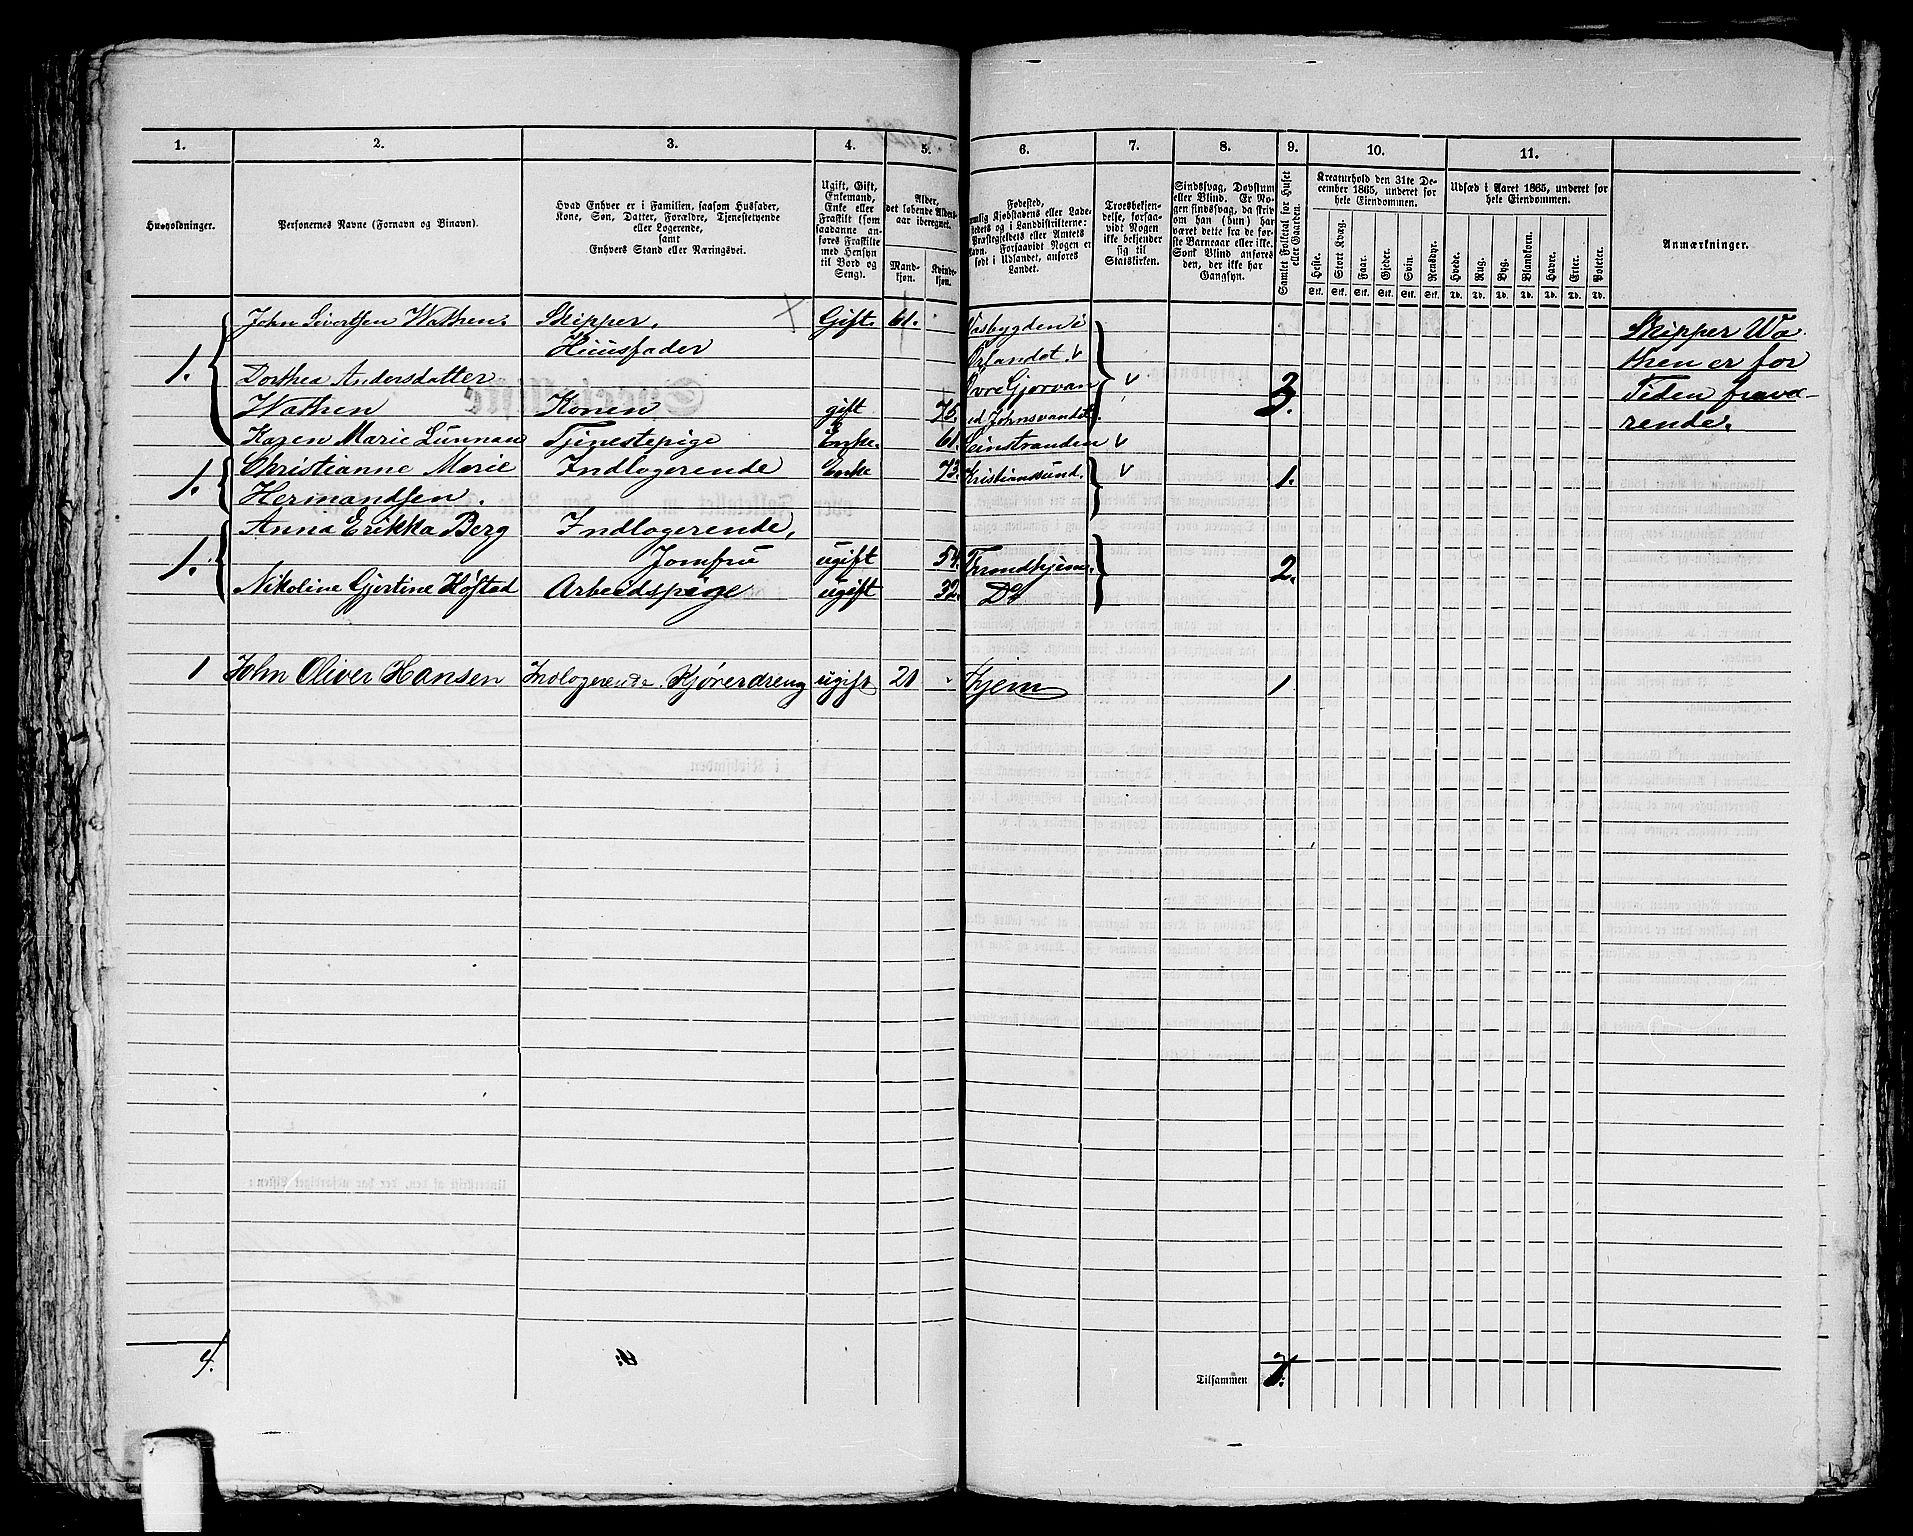 1. 2. 3. 4. 5. 6. 7. 8. 9. 10. 11.
Husholdninger.
Personernes Navne (Fornavn og Binavn).
Hvad Enhver er i Familien, saasom Husfader,
Kone, Søn, Datter, Forældre, Tjenestetyende
eller Logerende,
samt
Enhvers Stand eller Næringsvei.
Ugift, Gift,
Enkemand,
Enke eller
Fraskilt (som
saadanne an-
føres Fraskilte
med Hensyn
til Bord og
Seng).
Alder,
det løbende Alders-
aar iberegnet.
Mand-
kjøn.
Kvinde-
kjøn.
Fødested,
Kjøbstadens eller Lade-
stedets og i Landdistrikterne:
Præstegjeldets eller Amtets
Navn. Forsaavidt Nogen er
født i Udlandet, anføres
Landet.
Troesbekjen-
delse, forsaa-
vidt Nogen
ikke bekjender
sig til
Statskirken.
Sindssvag, Døvstum
eller Blind. Er No-
gen sindssvag, da skriv
om han (hun) har
været dette fra de før-
ste Barneaar eller ikke.
Som Blind anføres
den, der ikke har
Gangsyn.
Samlet Folketal for Huset
eller Gaarden.
Kreaturhold den 31te De-
cember 1865, underet for
hele Eiendommen.
Heste. Stort Kvæg. Faar. Gjeder. Svin. Rensdyr.
Stk. Stk. Stk. Stk. Stk. Stk.
Udsæd i Aaret 1865, underet for
hele Eiendommen.
Hvede. Rug. Byg. Blandkorn. Havre. Erter. Poteter.
Td. Td. Td. Td. Td. Td. Td.
Anmærkninger.
John Sivertsen Wathen. Skipper, Gift. 61. Skipper Wa-
Huusfader Ørlandet. v then er for
1. Dorthea Andersdatter Øvre Gjervan v 3. Tiden fravæ-
Wathen Konen gift 76. ved Johnsvandet. rende.
Karen Marie Lunnan Tjenestepige Enke. 61. Leinstranden v
1. Christianne Marie Indlogerende Enke 73. Kristiansund. v 1.
Hermandsen.
Anna Erikka Berg Indlogerende,
1. Jomfru ugift 54. Trondhjem. 2.
Nikoline Gjertine Høfstad Arbeidspige ugift 32. Do
1 John Oliver Hansen Indlogerende, Kjørerdreng ugift 21 Thjem 1
Tilsammen 7.